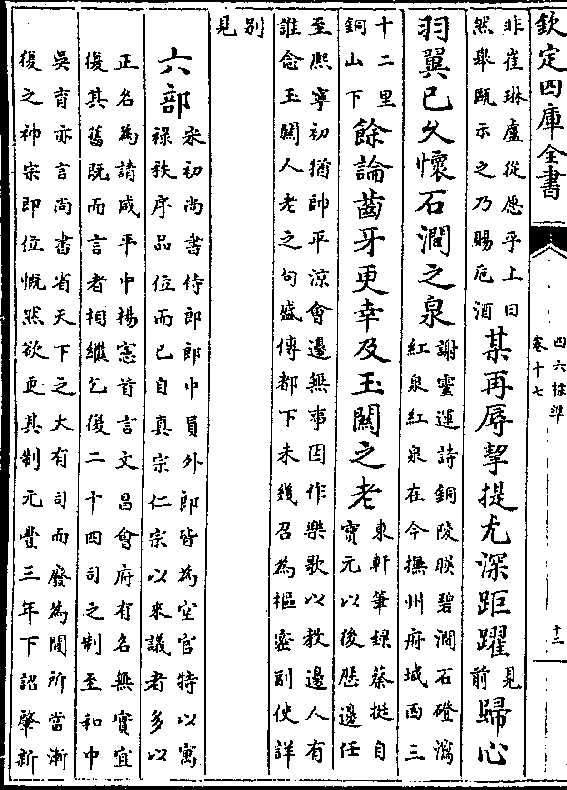 欽定四庫全書
四六標準
卷十七
十二
非崔琳盧從愿乎上曰
然舉甌示之乃賜卮酒
某再辱挈提尤深距躍
見
前
歸心
羽翼已久懷石澗之泉
謝靈運詩銅陵映碧澗石磴瀉
紅泉紅泉在今撫州府城西三
十二里
銅山下
餘論齒牙更幸及玉關之老
東軒筆錄蔡挺自
寶元以後歷邊任
至熙寧初猶帥平涼會邊無事因作樂歌以教邊人有
誰念玉關人老之句盛傳都下未幾召為樞密副使詳
別
見
六部
宋初尚書侍郎郎中員外郎皆為空官特以寓
祿秩序品位而已自真宗仁宗以來議者多以
正名為請咸平中楊憲首言文昌會府有名無實宜
復其舊既而言者相繼乞復二十四司之制至和中
吳育亦言尚書省天下之大有司而廢為閒所當漸
復之神宗即位慨然欲更其制元豐三年下詔肇新